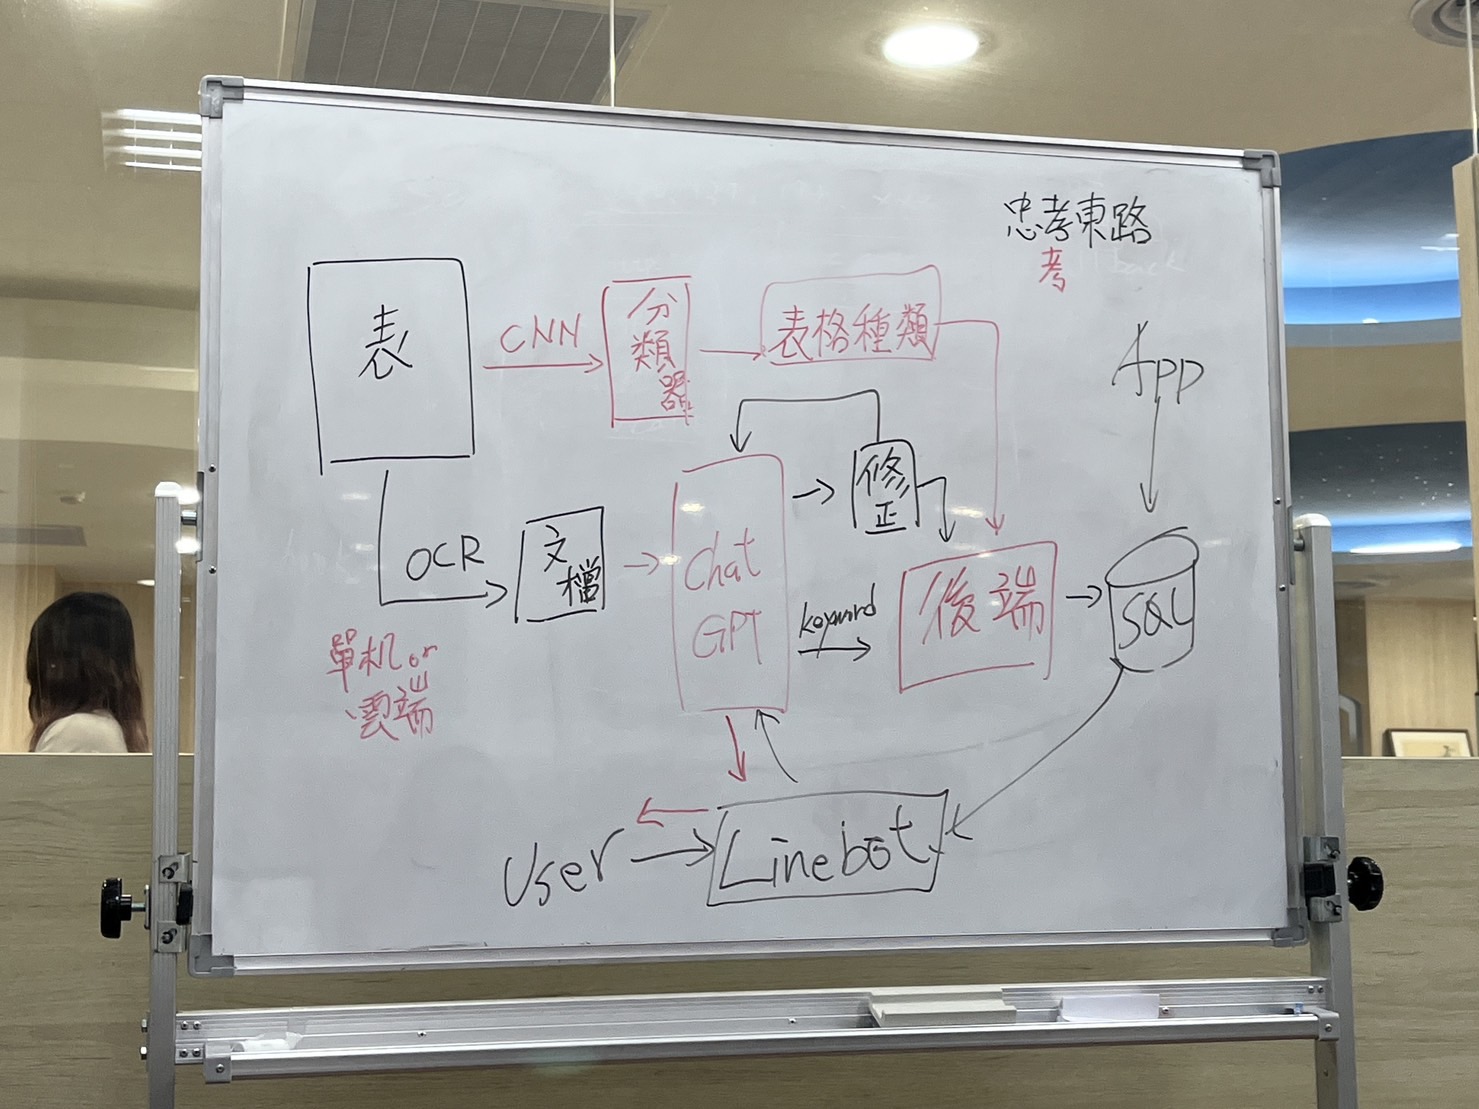 忠孝東路
考
表
CNN
分
類
器
表格種類
App
修
正
OCR
文
檔
Chat
GPT
keyword
後端
SQL
單机or
雲端
User
Linebot